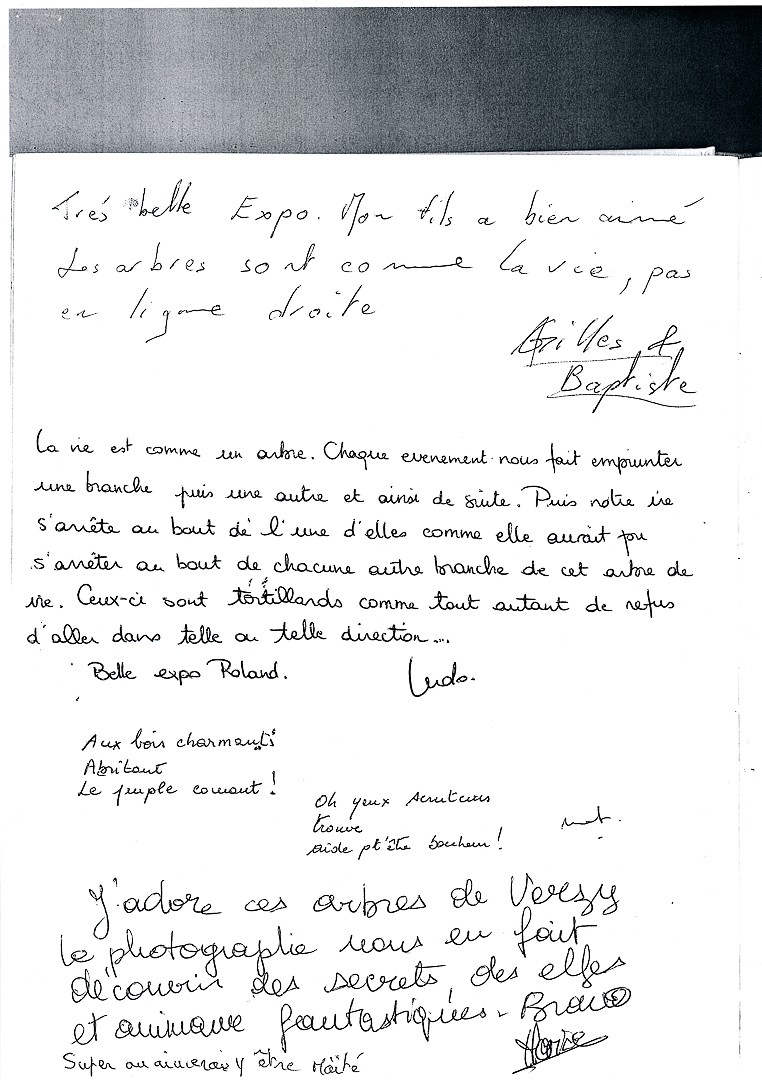 Très belle Expo. Mon fils a bien aimé
Les arbres sont comme la vie, pas
en ligne droite
Gilles &
Baptiste
La vie est comme un arbre. Chaque evenement nous fait emprunter
une branche puis une autre et ainsi de suite. Puis notre vie
s'arrête au bout de l'une d'elles comme elle aurait pu
s'arrêter au bout de chacune autre branche de cet arbre de
vie. Ceux-ci sont tortillards comme tout autant de refus
d'aller dans telle ou telle direction...
Belle expo Roland. Ludo.
Aux bois charmants
Abritant
Le peuple courant !
Oh yeux scruteurs
trouve
aide pt'être bonheur !
J'adore ces arbres de Verzy
la photographie nous en fait
découvrir des secrets, des elfes
et animaux fantastiques. Bravo
Super on aimerais y être Maïté